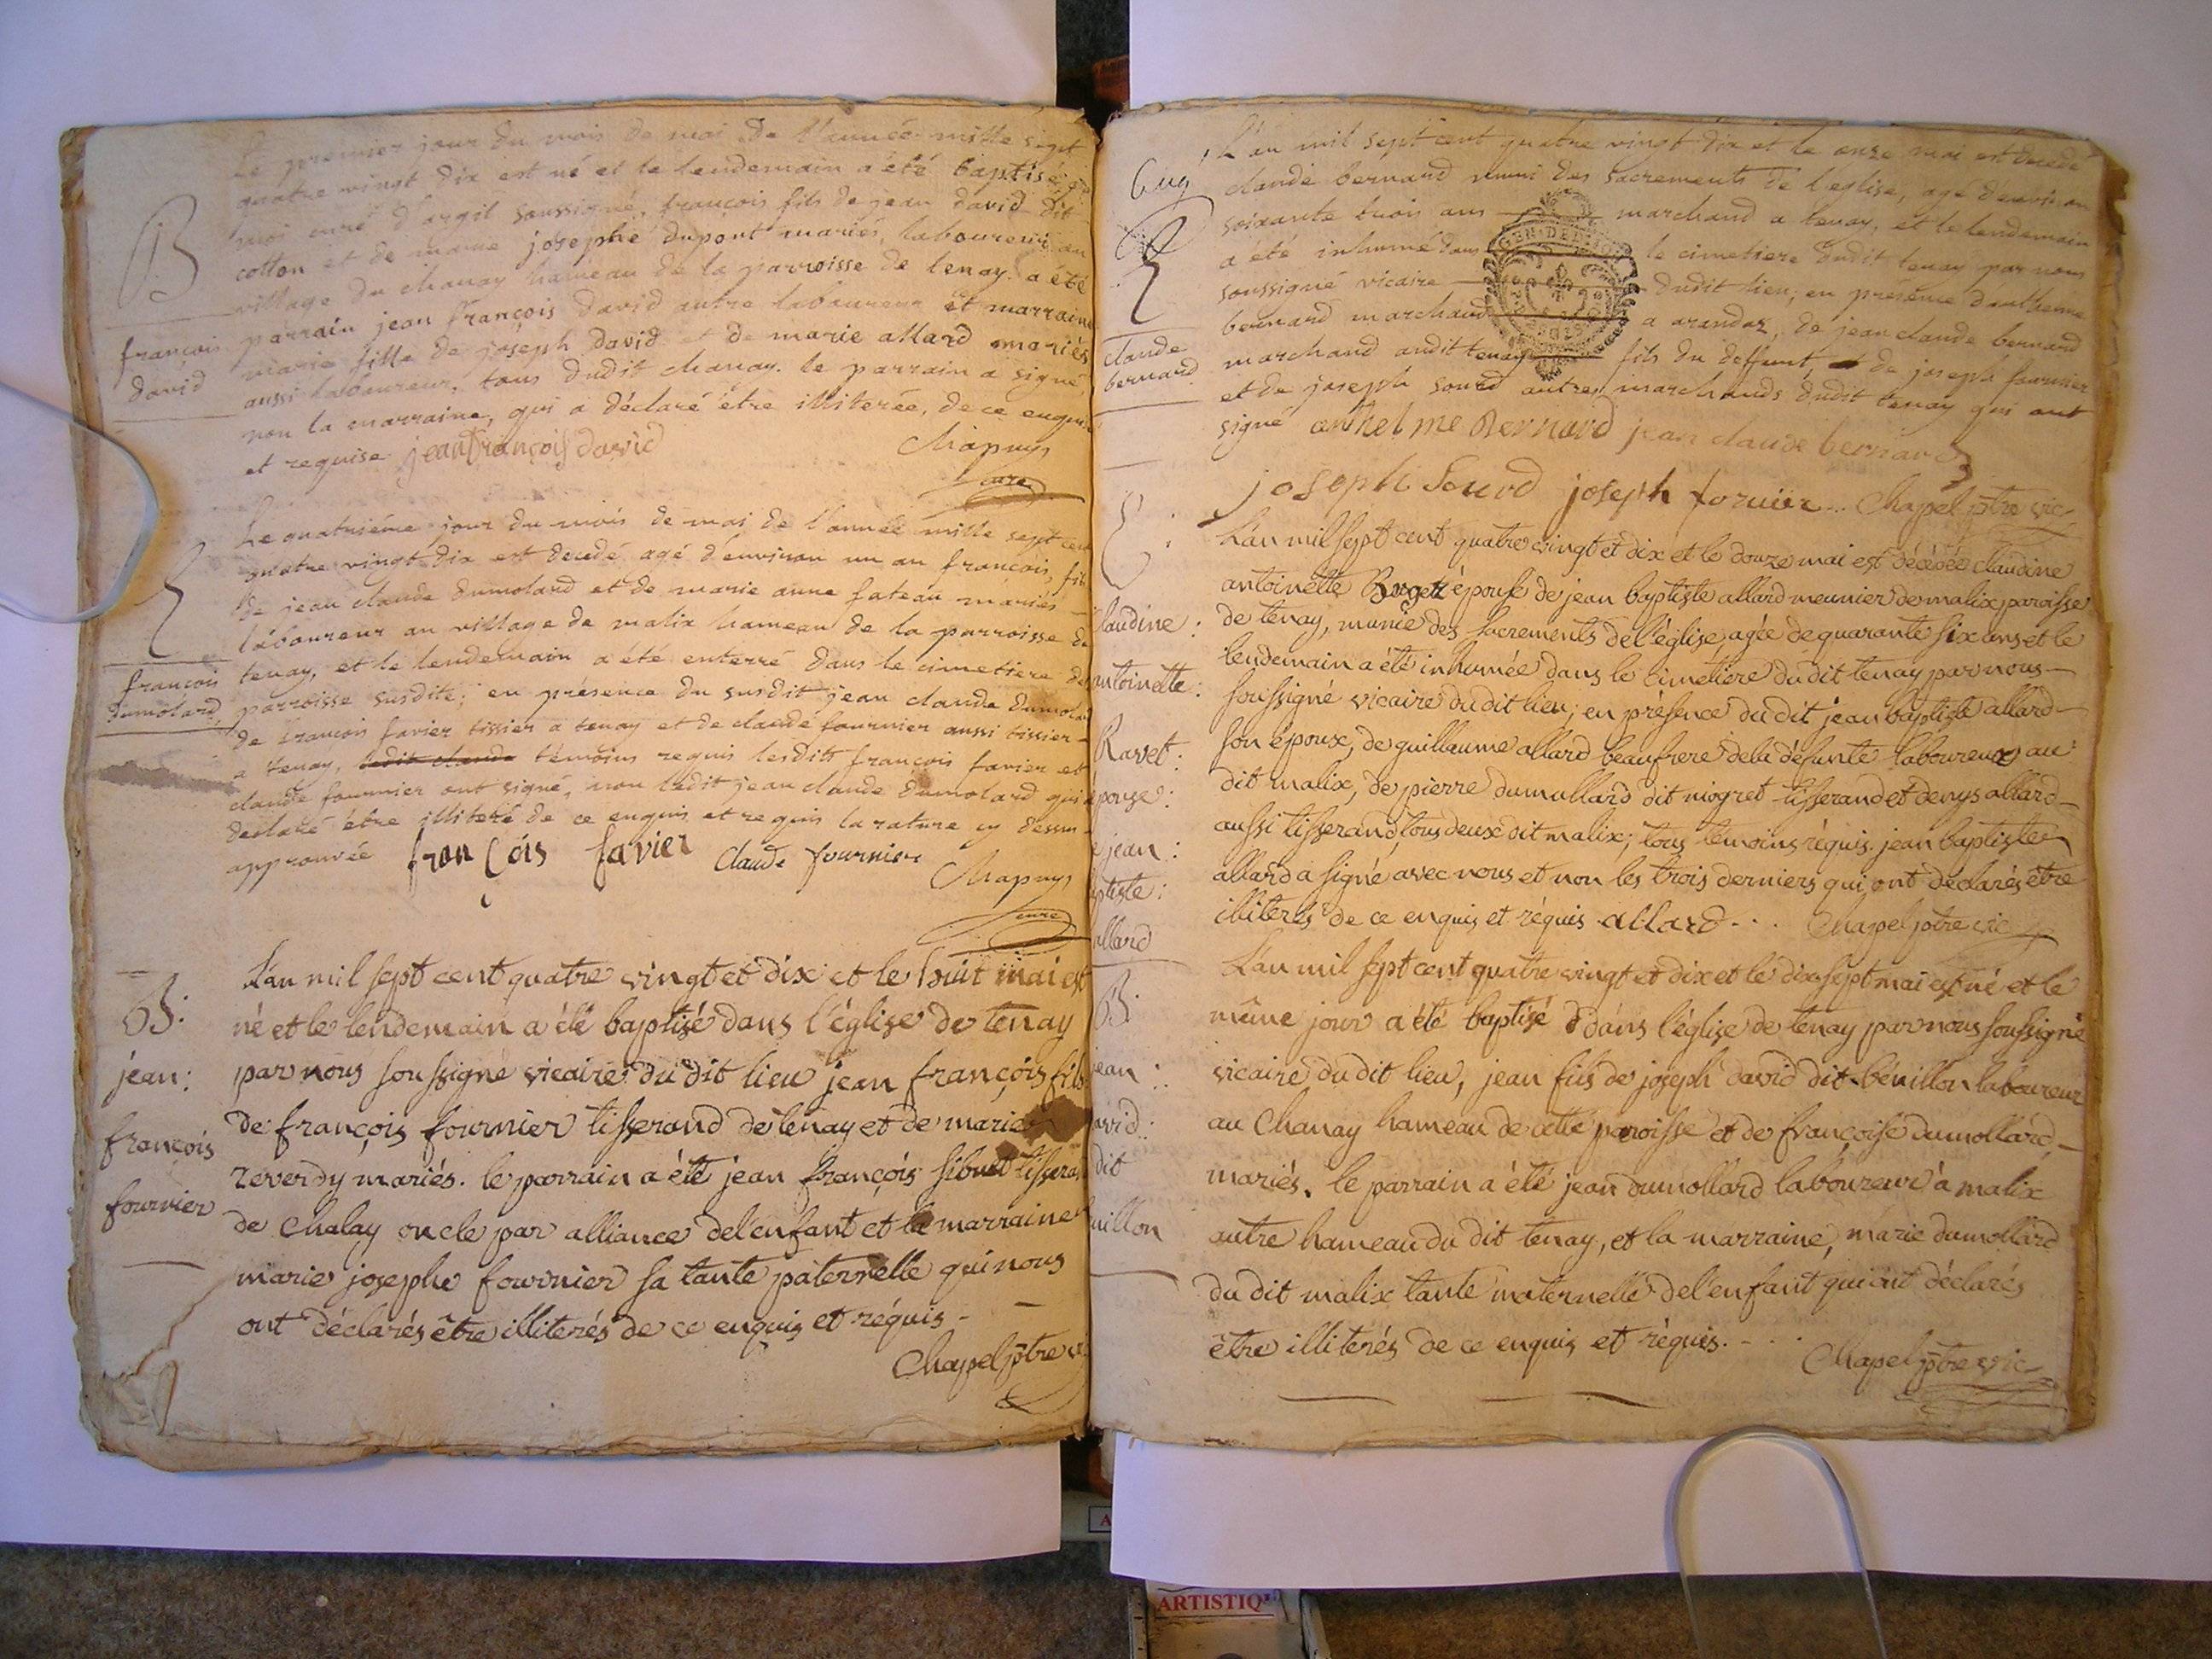 Le premier jour du mois de mai de l'année mille sept
quatre vingt dix est né et le lendemain a été baptisé par
moi curé d'argil soussigné, françois fils de jean david dit
cotton et de marie josephe dupont mariés, laboureur au
village du chanay hameau de la parroisse de tenay. a été
parrain jean françois david autre laboureur et marraine
marie fille de joseph david et de marie allard mariés
aussi laboureur, tous dudit chanay. le parrain a signé
non la marraine, qui a déclaré être illiterée, de ce enquise
et requise jean françois david
Chapuys
curé
B
françois
david
Le quatrième jour du mois de mai de l'année mille sept cent
quatre vingt dix est decedé agé d'environ un an françois, fils
de jean claude dumolard et de marie anne fateau mariés
laboureur au village de malix hameau de la parroisse de
tenay, et le lendemain a été enterré dans le cimetiere de
parroisse susdite; en présence du susdit jean claude dumolard
de françois favier tissier a tenay et de claude fournier aussi tissier
a tenay, ledit claude témoins requis lesdits françois favier et
claude fournier ont signé, non ledit jean claude dumolard qui a
declaré être illiteré de ce enquis et requis la rature cy dessus
approuvée françois favier Claude fournier
Chapuys
curé
françois
dumolard
L'an mil sept cent quatre vingt et dix et le huit mai est
né et le lendemain a été baptisé dans l'église de tenay
par nous soussigné vicaire du dit lieu jean françois fils
de françois fournier tisserand de tenay et de marie
reverdy mariés. le parrain a été jean françois sibuet tissera
de Chalay oncle par alliance de l'enfant et la marraine
marie josephe fournier sa tante paternelle qui nous
ont déclarés être illiterés de ce enquis et réquis -
Chapel ptre vi
B:
jean:
françois
fournier
L'an mil sept cent quatre vingt dix et le onze mai est decedé
claude bernard muni des sacrements de l'eglise, agé d'environ
soixante trois ans marchand a tenay, et le lendemain
a été inhumé dans le cimetiere dudit tenay par nous
soussigné vicaire dudit lieu; en présence d'anthelme
bernard marchand a arandaz, de jean claude bernard
marchand audit tenay fils du deffunt, de joseph fournier
et de joseph sourd autres marchands dudit tenay qui ont
signé anthelme Bernard jean claude bernard
joseph Sourd joseph fornier Chapel ptre vic
GEN. DE DIJON
claude
bernard
L'an mil sept cent quatre vingt et dix et le douze mai est décédée claudine
antoinette épouse de jean baptiste allard meunier de malix paroisse
de tenay, munie des sacrements de l'église, agée de quarante six ans et le
lendemain a été inhumée dans le cimetiere du dit tenay par nous
soussigné vicaire du dit lieu; en présence du dit jean baptiste allard
son époux, de guillaume allard beaufrere de la défunte laboureur au
dit malix, de pierre dumollard dit niogret tisserand et denys allard
aussi tisserand, tous deux dit malix; tous témoins réquis. jean baptiste
allard a signé avec nous et non les trois derniers qui ont déclarés être
illiterés de ce enquis et réquis allard Chapel ptre vic
laudine:
ntoinette:
Ravet:
pouse:
jean:
ptiste:
allard
L'an mil sept cent quatre vingt et dix et le dix sept mai est né et le
même jour a été baptisé dans l'église de tenay par nous soussigné
vicaire du dit lieu, jean fils de joseph david dit bénillon laboureur
au Chanay hameau de cette paroisse et de françoise dumollard
mariés. le parrain a été jean dumollard laboureur à malix
autre hameau du dit tenay, et la marraine, marie dumollard
du dit malix tante maternelle de l'enfant qui ont déclarés
être illiterés de ce enquis et réquis.
Chapel ptre vic
B:
jean:
avid:
dit
nillon
ARTISTIQ